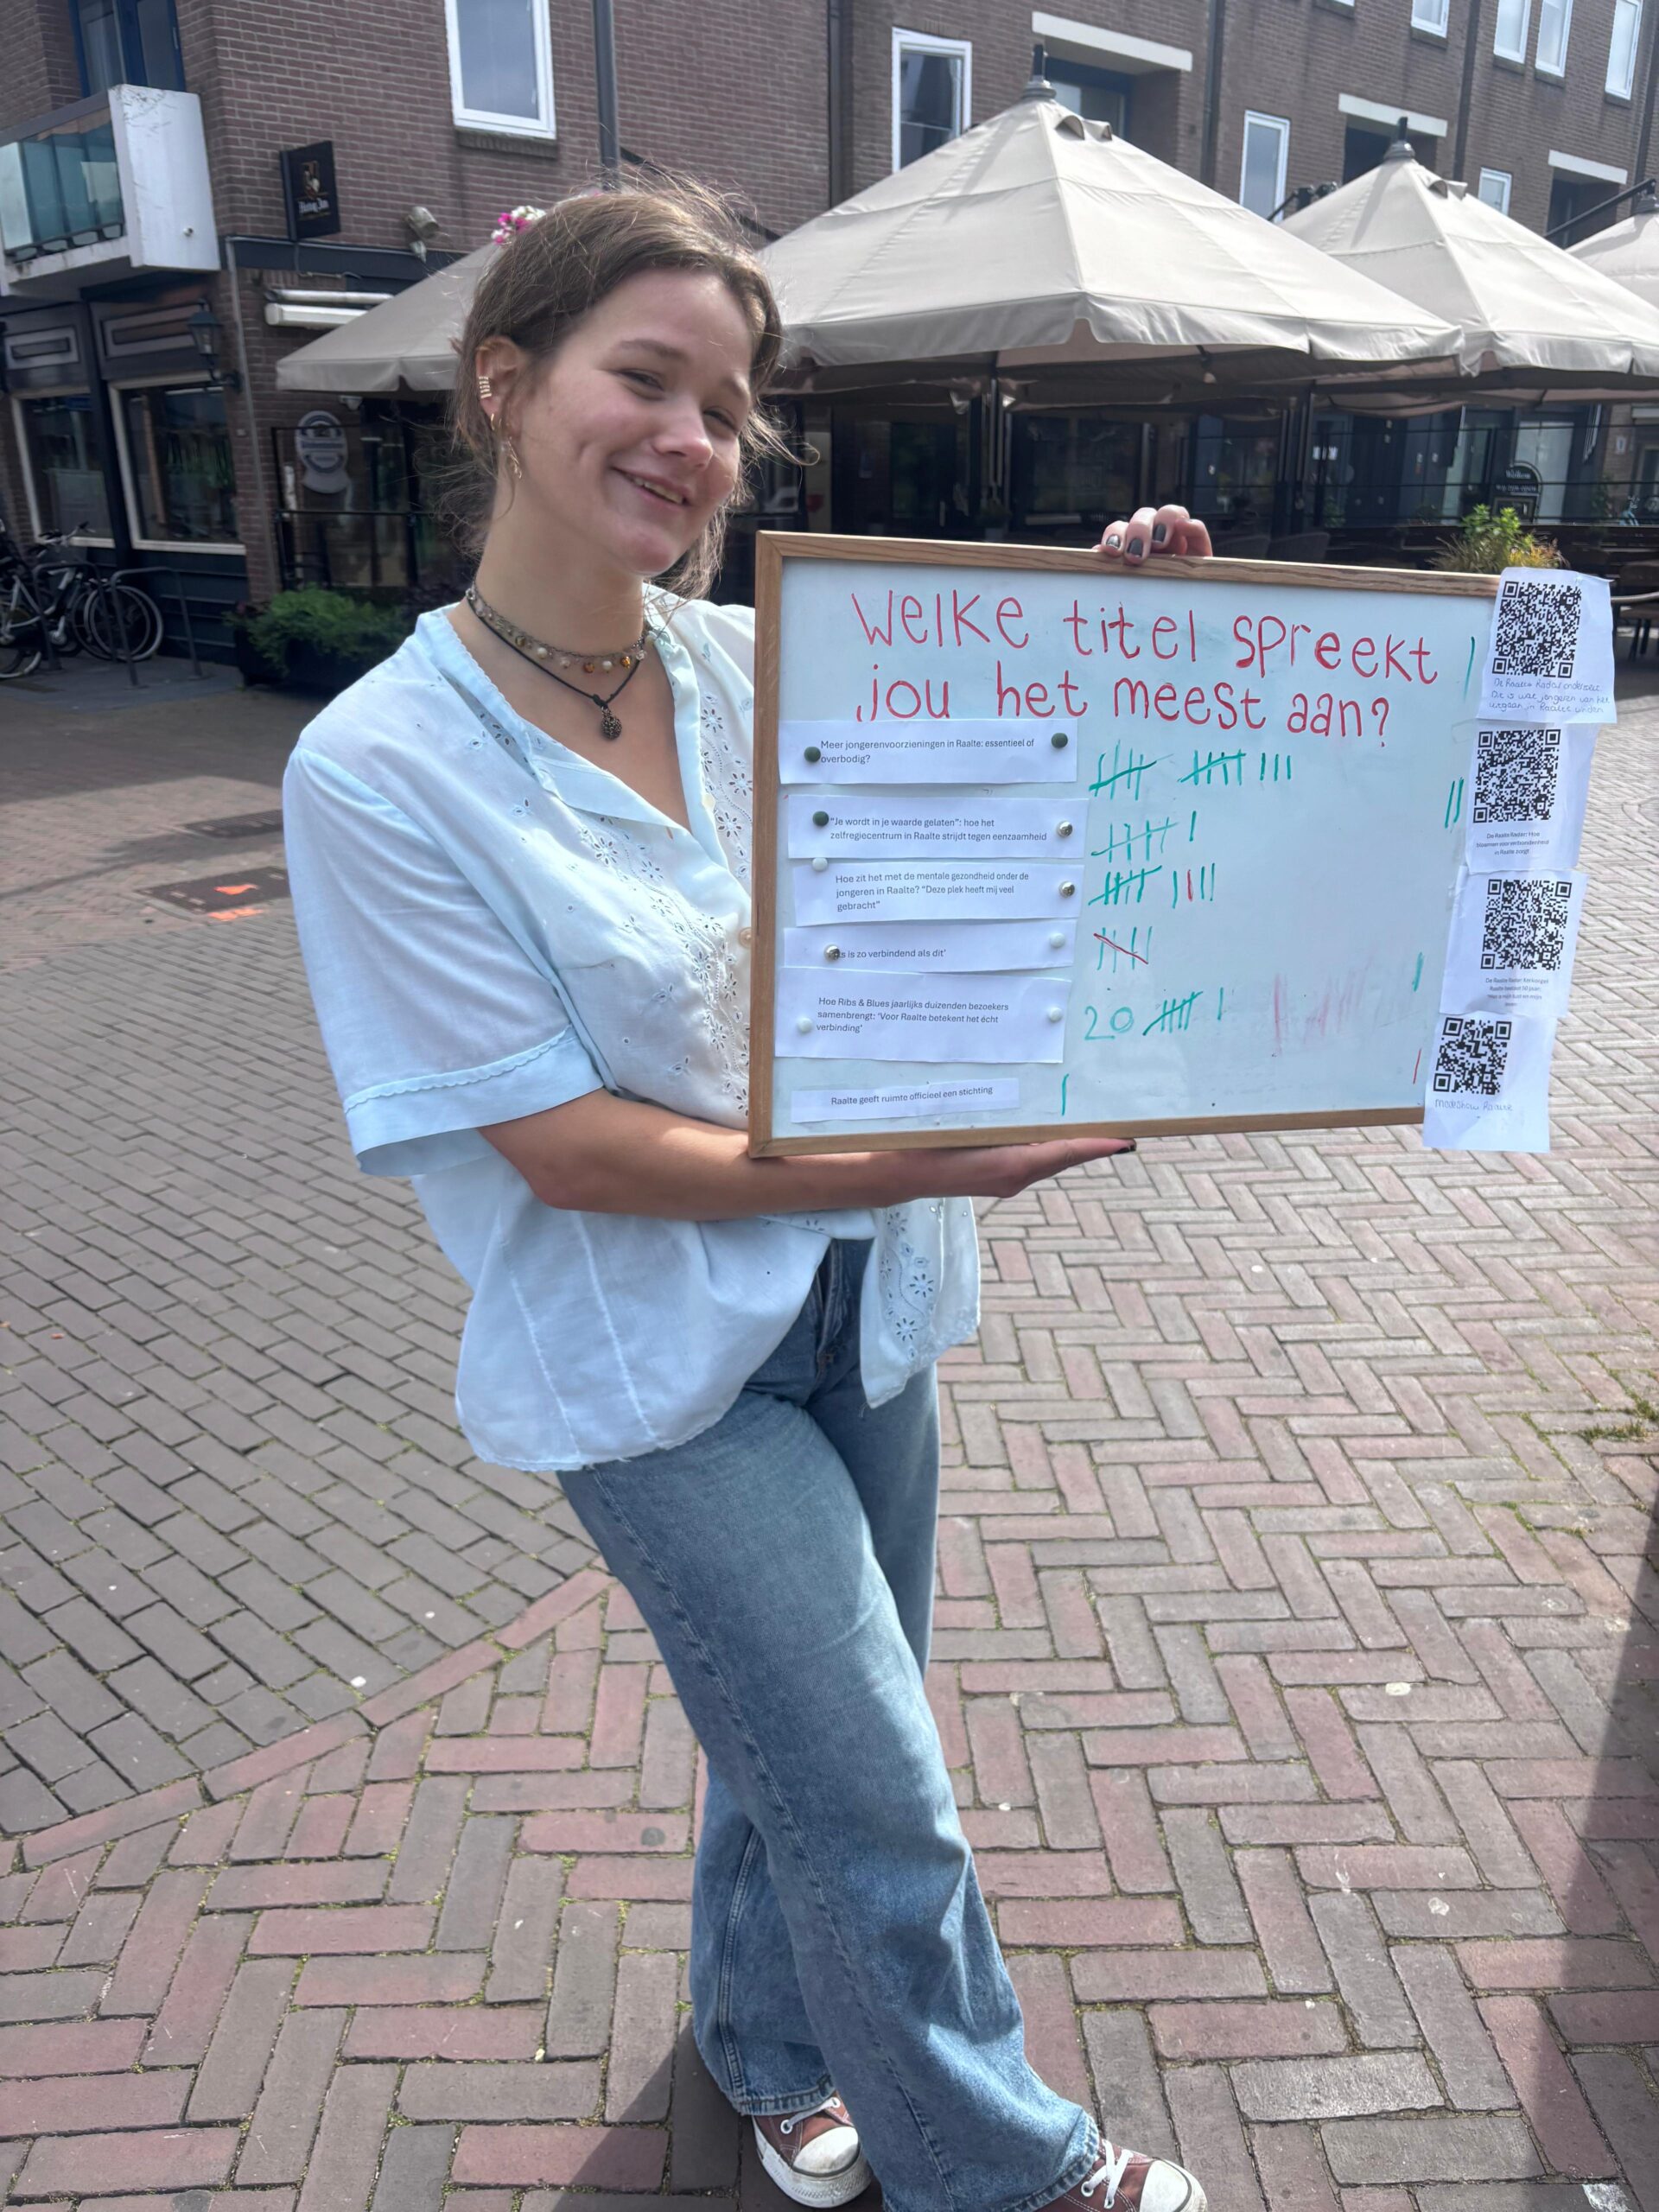 Welke titel spreekt
jou het meest aan?
Meer jongerenvoorzieningen in Raalte: essentieel of
overbodig?
"Je wordt in je waarde gelaten": hoe het
zelfregiecentrum in Raalte strijdt tegen eenzaamheid
Hoe zit het met de mentale gezondheid onder de
jongeren in Raalte? "Deze plek heeft mij veel
gebracht"
is zo verbindend als dit'
Hoe Ribs & Blues jaarlijks duizenden bezoekers
samenbrengt: 'Voor Raalte betekent het écht
verbinding'
20
Raalte geeft ruimte officieel een stichting
De Raalte Radar onderzoekt:
Dit is wat jongeren van het
uitgaan in Raalte vinden
De Raalte Rader: Hoe
bloemen voor verbondenheid
in Raalte zorgt
De Raalte Rader:
Raalte bestaat 50 jaar:
Modeshow
Welkom